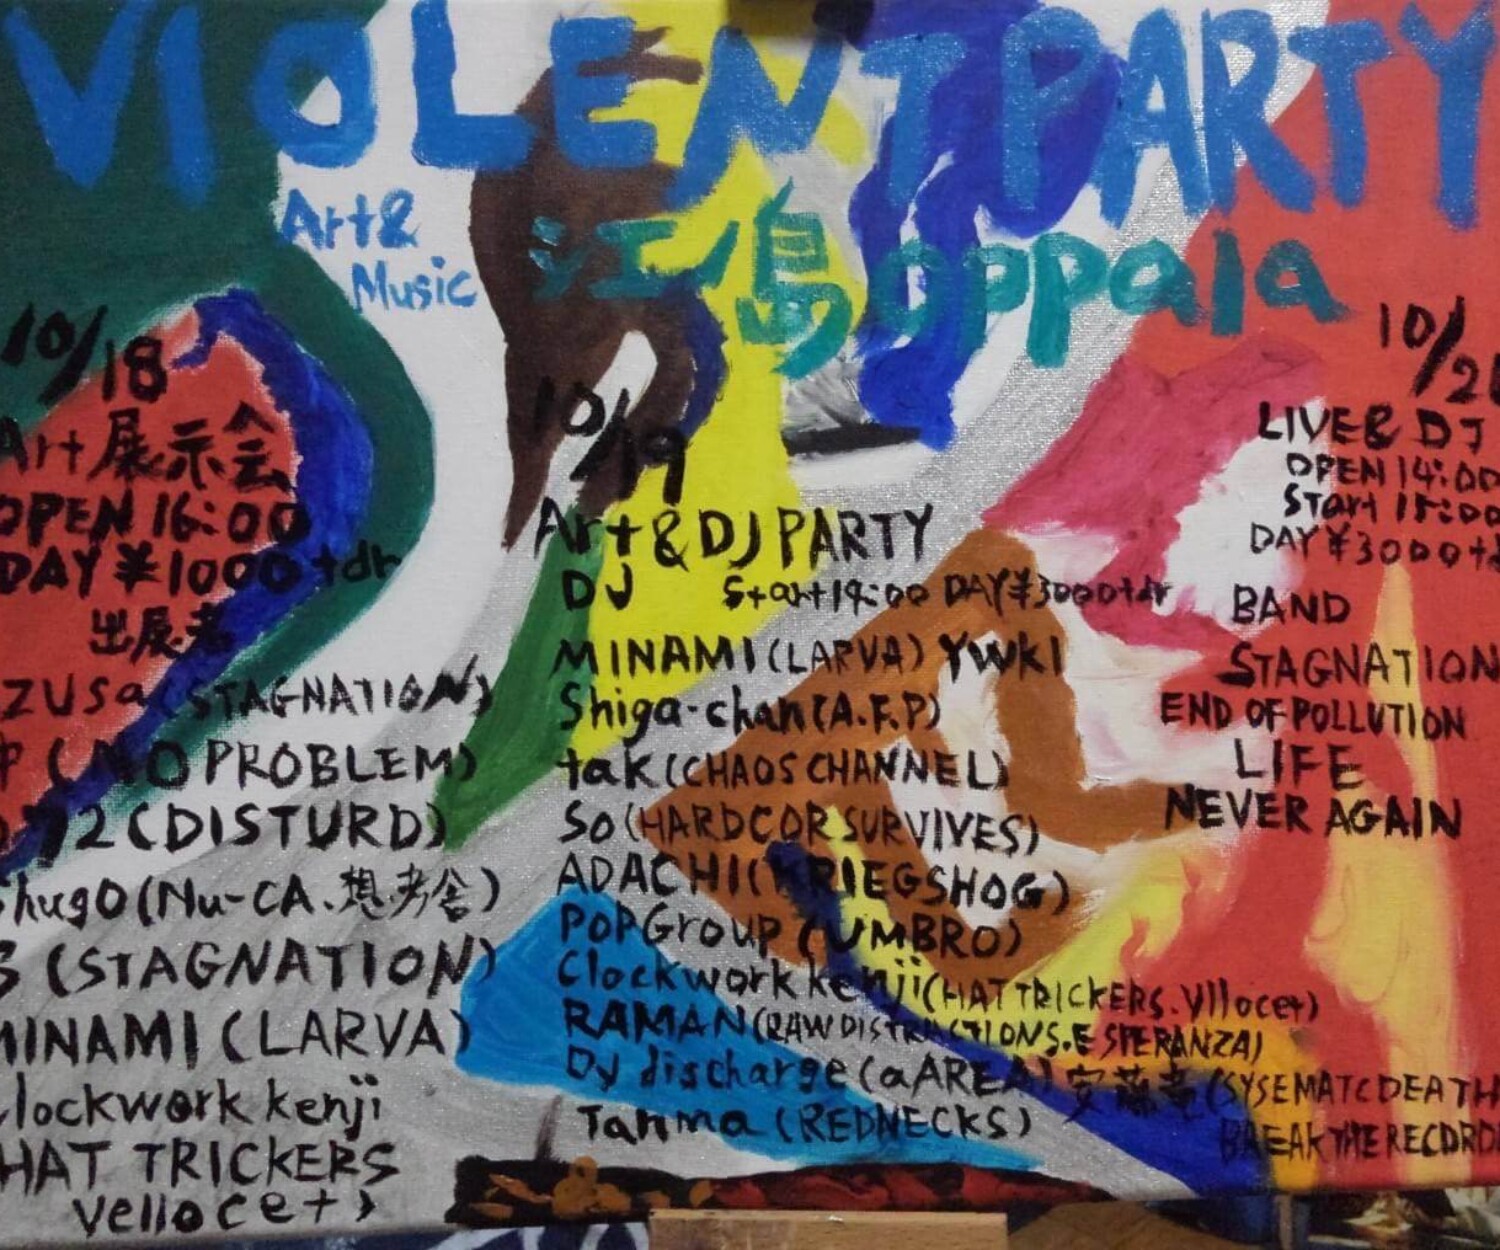 VIOLENT PARTY
Art &
Music
江ノ島 oppala
10/18
Art 展示会
OPEN 16:00
DAY ¥1000+dr
出展者
zusa (STAGNATION)
(NO PROBLEM)
(DISTURD)
Shugo (Nu-CA.想考舎)
(STAGNATION)
MINAMI (LARVA)
Clockwork kenji
HAT TRICKERS
Vellocet >
10/19
Art & DJ PARTY
DJ Start 19:00 DAY ¥3000+dr
MINAMI (LARVA) YWKI
Shiga-chan (A.F.P)
tak (CHAOS CHANNEL)
So (HARDCOR SURVIVES)
ADACHI (KRIEGSHOG)
POPGroup (UMBRO)
Clockwork kenji (HAT TRICKERS. Vllocet)
RAMAN (RAW DISTRACTIONS.ESPERANZA)
Dy discharge (aAREA) 安藤竜 (SYSEMATCDEATH
Tanma (REDNECKS) BREAK THE RECORD
10/2
LIVE & DJ
OPEN 14:00
Start 15:00
DAY ¥3000+d
BAND
STAGNATION
END OF POLLUTION
LIFE
NEVER AGAIN